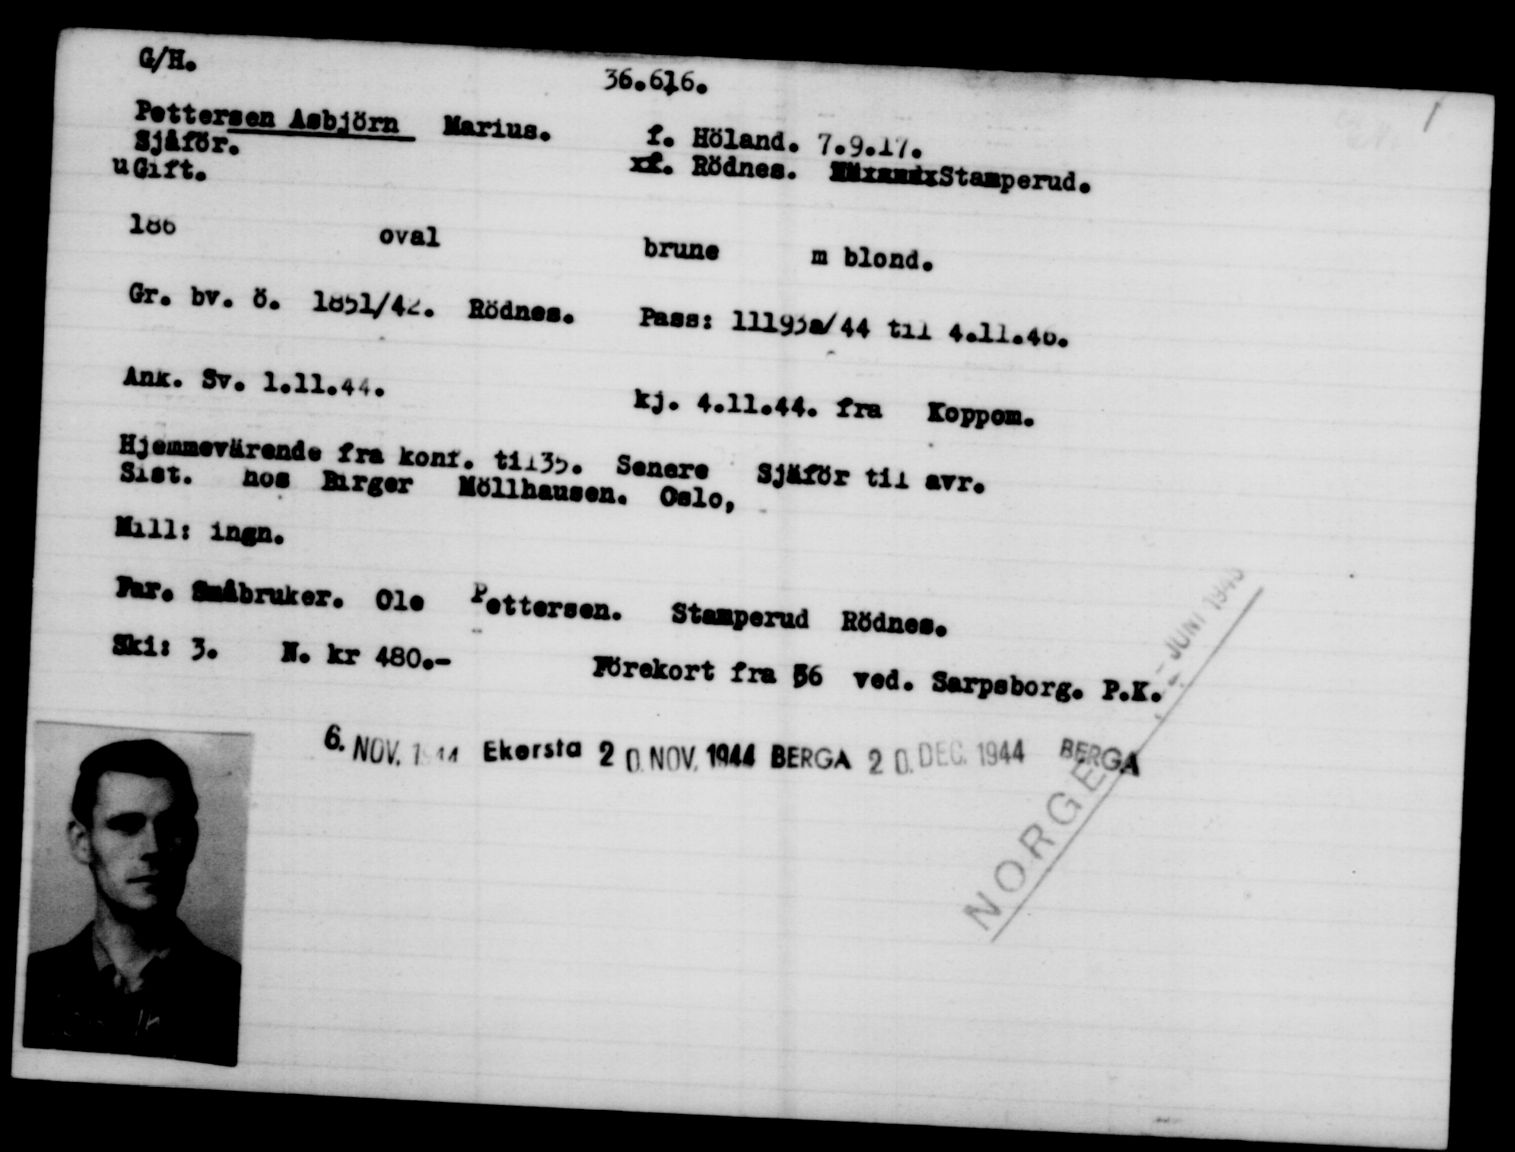 G/H.
36.616.
Pettersen Asbjörn Marius. f. Höland. 7.9.17.
Sjåför. xf. Rödnes. Stamperud.
uGift.
186 oval brune m blond.
Gr. bv. ö. 1851/42. Rödnes. Pass: 11193a/44 til 4.11.46.
Ank. Sv. 1.11.44. kj. 4.11.44. fra Koppom.
Hjemmevärende fra konf. til35. Senere Sjåför til avr.
Sist. hos Birger Möllhausen. Oslo,
Mill: ingn.
Far. Småbruker. Ole Pettersen. Stamperud Rödnes.
Ski: 3. N. kr 480.- Förekort fra 36 ved. Sarpsborg. P.K.
6. NOV. 1944 Ekersta 20. NOV. 1944 BERGA 20. DEC. 1944 BERGA
- JUNI 1945
NORGE